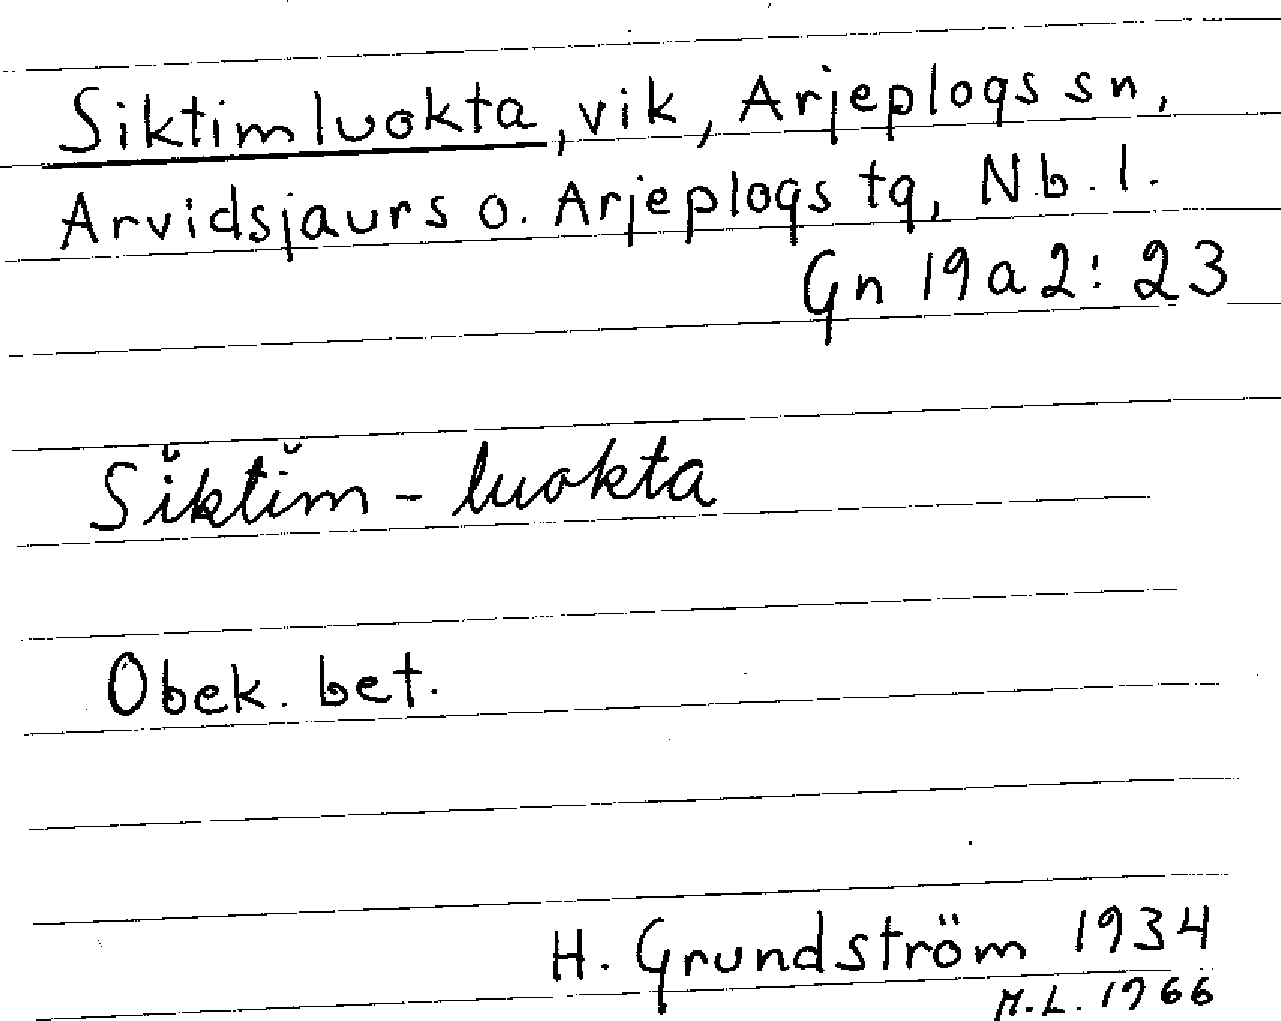 Siktimluokta, vik, Arjeplogs sn,
Arvidsjaurs o. Arjeplogs tg, Nb. l.
Gn 19 a 2: 23
Sĭktĭm - luokta
Obek. bet.
H. Grundström 1934
M.L. 1966